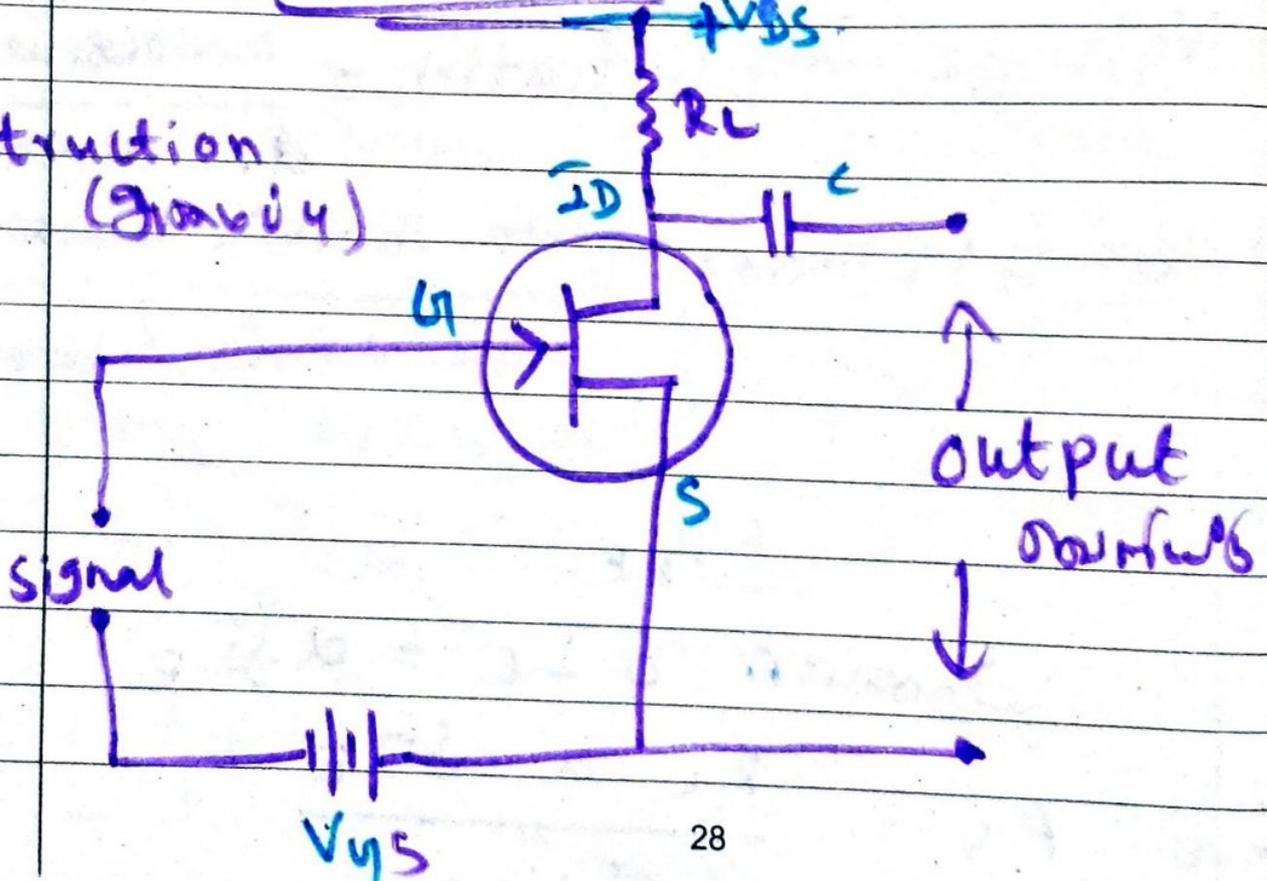 +VDS
RL
truction
ID
C
G
output
S
signal
28
VGS